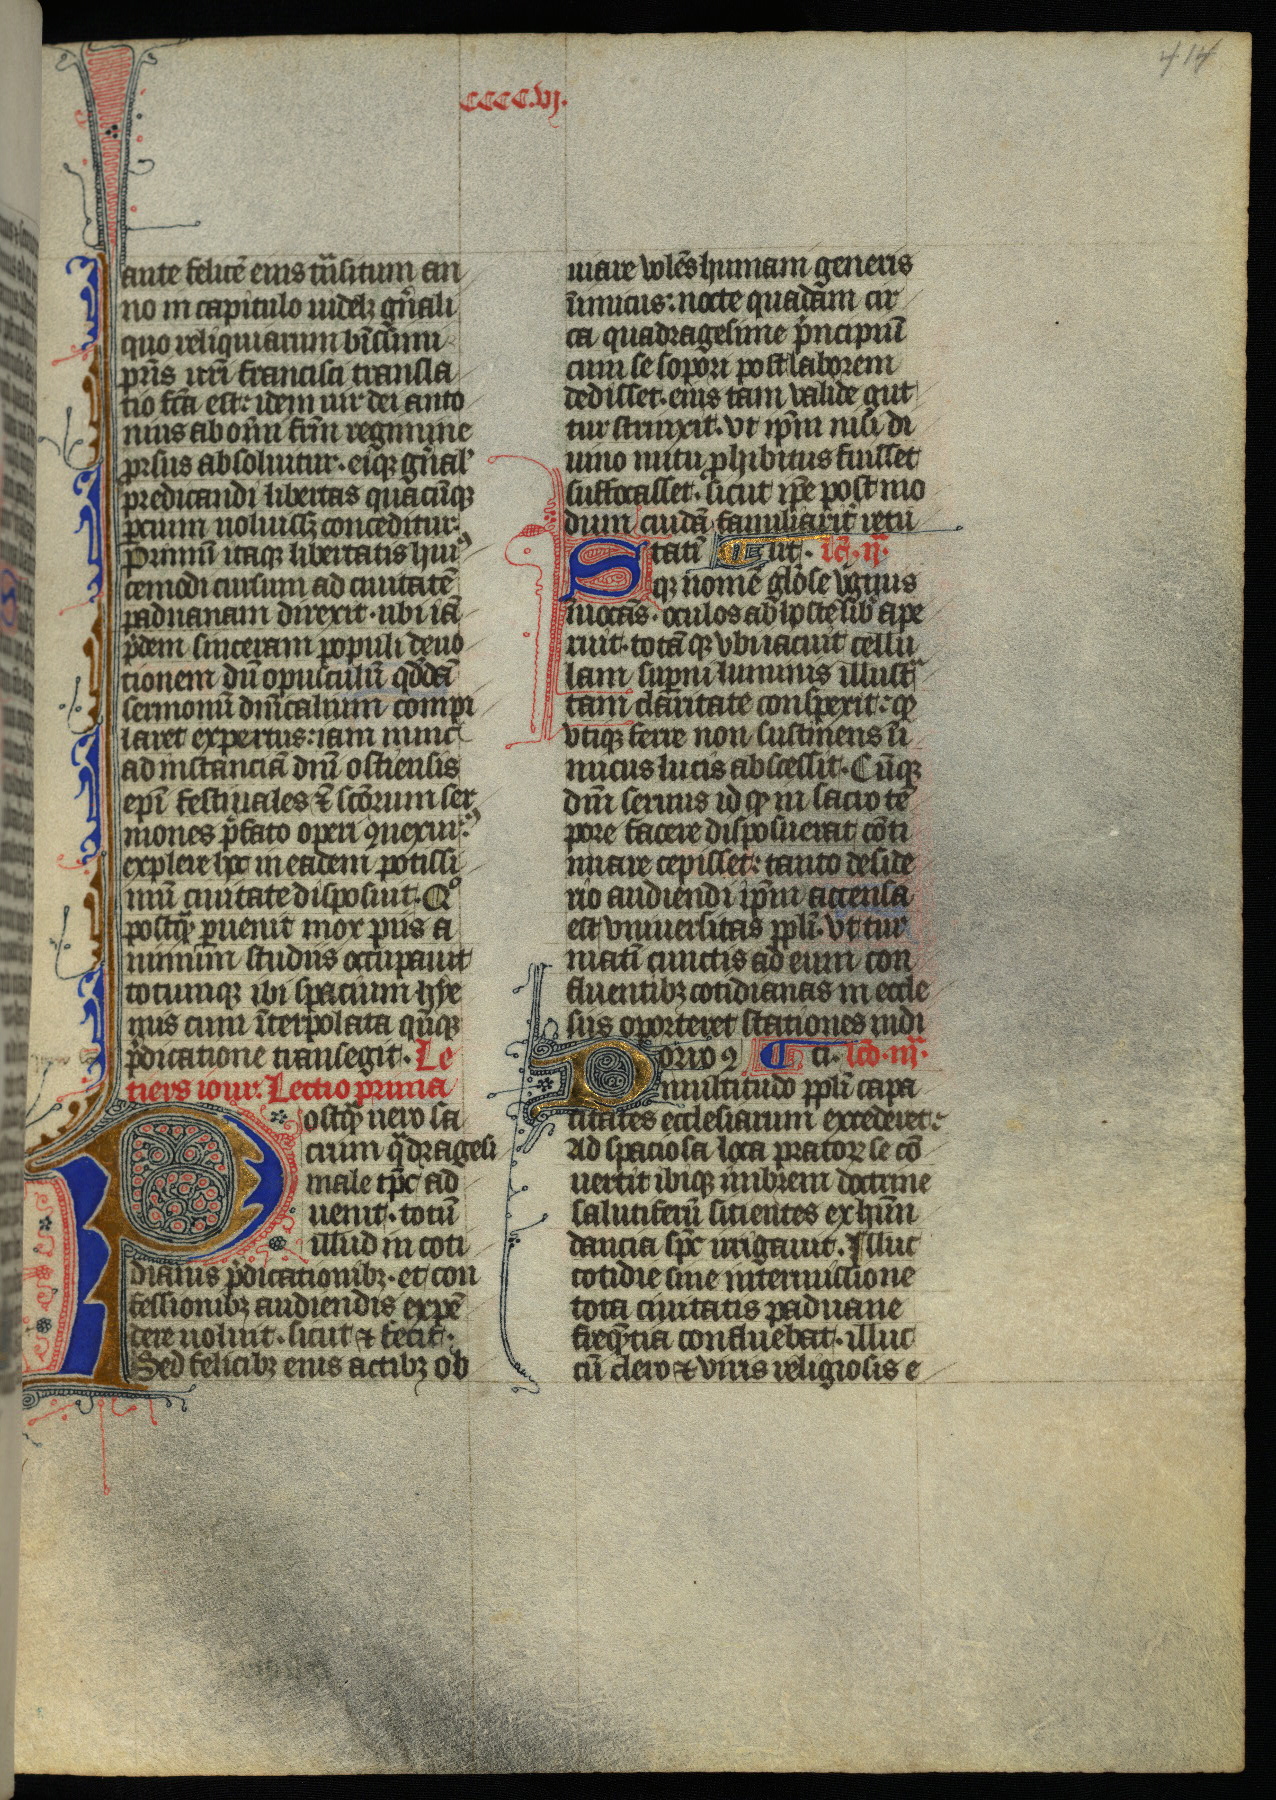 414
CCCC.vj.
ante felicē eius trāsitum an
no in capitulo uidelꝫ gn̄ali
quo reliquiarum bīssimi
pr̄is nr̄i francisci transla
tio fc̄a est: idem uir dei anto
nius ab omī fr̄m regimine
ꝓrsus absoluitur. eiqꝫ gn̄al'
predicandi libertas quacūqꝫ
ꝑcium uoluissꝫ conceditur.
Primū itaqꝫ libertatis huiꝰ
cemodi cursum ad ciuitatē
paduanam direxit. ubi iā
pͥdem sinceram populi deuo
tionem dū opusculū qͦddā
sermonū dn̄icalium compi
laret expertus: iam nunc
ad instanciā dn̄i ostiensis
epī festiuales ⁊ sc̄orum ser
mones p̄fato operi ꝯnexuiꝰ:
explere hoc in eadem potissi
mū ciuitate disposuit. Qͦ
postqͣꝫ ꝑuenit mox piis a
nimum studiis occupauit
totumqꝫ ibi spacium hye
mis cum īterpolata qūqꝫ
p̄dicatione transegit. Le
tiers iour. Lectio prima
Postqͣꝫ uero sa
crum qͣdragesi
male tp̄c ad
uenit. totū
illud in coti
dianis p̄dicationibꝫ. et con
fessionibꝫ audiendis expē
dere uoluit. sicut ⁊ fecit.
Sed felicibꝫ eius actibꝫ ob
uiare volēs humani generis
īimicus: nocte quadam cir
ca quadragesime pͥncipiū
cum se sopori post laborem
dedisset. eius tam valide gut
tur strinxit. vt ip̄m nisi di
uino nutu ꝓhibitus fuisset
suffocasset. sicut ip̄e post mo
dum cuidā familiariꝰ retu
Statī lit. lc̄. ij.
qꝫ nomē gl̄ose vgīnis
īuocās. oculos ab hoste sibi ape
ruit. totā qꝫ vbi iacuit cellu
lam suꝑni luminis illustͣ
tam claritate conspexit: qͦ
vtiqꝫ ferre non sustinens īi
micus lucis abscessit. Cūqꝫ
dn̄i seruus id qͦ in sacro tē
pore facere disposuerat cōti
nuare cepisset: tanto deside
rio audiendi ip̄m accensa
est vniuersitas ppl̄i. vt tur
matī cunctis ad eum con
fluentibꝫ cotidianas in eccle
siis oporteret stationes indi
Porro ꝯ ci. lc̄o. iij.
multitudo ppl̄i capa
citates ecclesiarum excederet:
Ad spaciosa loca pratorꝝ se cō
uertit ibiqꝫ imbrem doctrine
salutiferū sitientes ex hūn
dancia sp̄c irrigauit. Illuc
cotidie sine intermissione
tota ciuitatis paduane
freqͣntia confluebat. illuc
cū clero ⁊ viris religiosis e